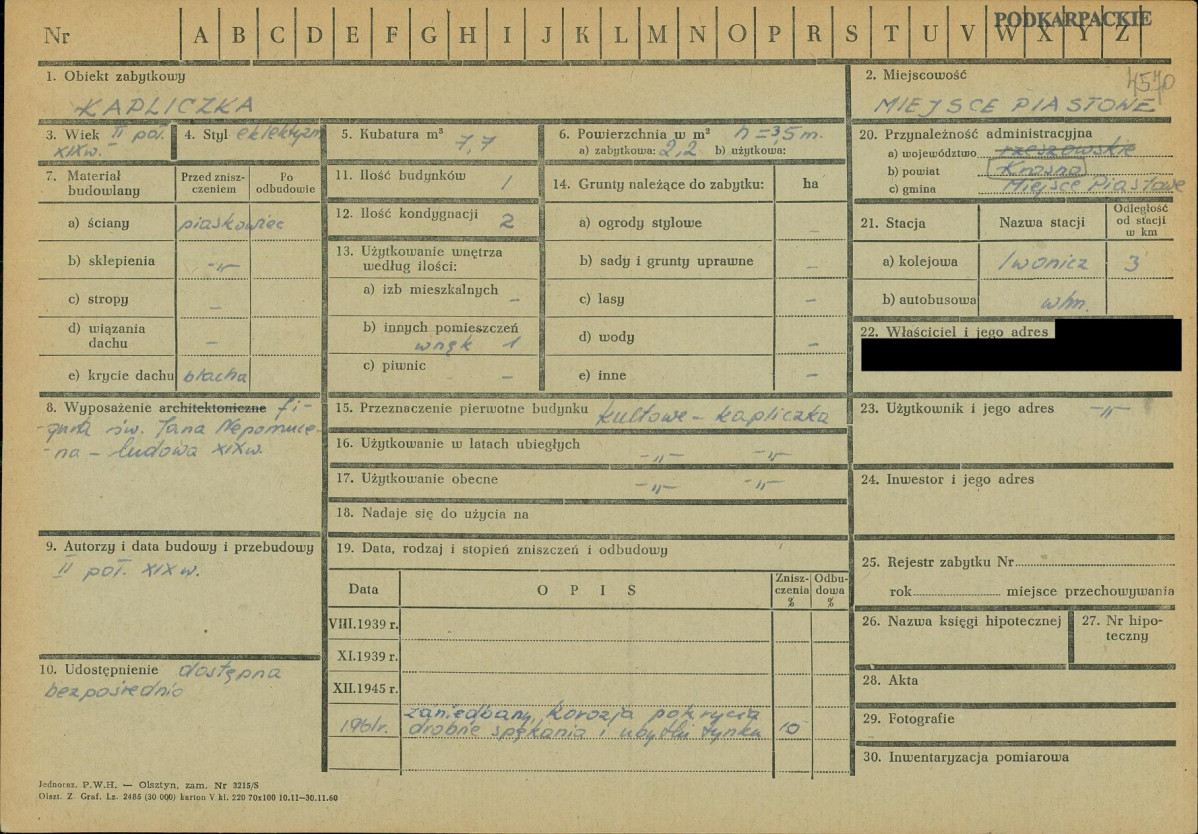 PODKARPACKIE
Nr A B C D E F G H I J K L M N O P R S T U V W X Y Z
4570
1. Obiekt zabytkowy
KAPLICZKA
2. Miejscowość
MIEJSCE PIASTOWE
3. Wiek II poł.
XIX w.
4. Styl eklektyzm
5. Kubatura m³
7,7
6. Powierzchnia w m² h = 3,5 m.
a) zabytkowa: 2,2 b) użytkowa:
7. Materiał budowlany
Przed zniszczeniem
Po odbudowie
a) ściany piaskowiec
b) sklepienia -„-
c) stropy –
d) wiązania dachu –
e) krycie dachu blacha
8. Wyposażenie architektoniczne fi-
gura św. Jana Nepomuce-
na – ludowa XIX w.
9. Autorzy i data budowy i przebudowy
II poł. XIX w.
10. Udostępnienie dostępna
bezpośrednio
11. Ilość budynków 1
12. Ilość kondygnacji 2
13. Użytkowanie wnętrza
według ilości:
a) izb mieszkalnych –
b) innych pomieszczeń
wnęk 1
c) piwnic –
14. Grunty należące do zabytku: ha
a) ogrody stylowe –
b) sady i grunty uprawne –
c) lasy –
d) wody –
e) inne –
15. Przeznaczenie pierwotne budynku kultowe – kapliczka
16. Użytkowanie w latach ubiegłych -„- -„-
17. Użytkowanie obecne -„- -„-
18. Nadaje się do użycia na
19. Data, rodzaj i stopień zniszczeń i odbudowy
Data O P I S Zniszczenia % Odbudowa %
VIII.1939 r.
XI.1939 r.
XII.1945 r.
zaniedbany, korozja pokrycia
1961r. drobne spękania i ubytki tynku 10
20. Przynależność administracyjna
a) województwo rzeszowskie
b) powiat Krosno
c) gmina Miejsce Piastowe
21. Stacja Nazwa stacji Odległość od stacji w km
a) kolejowa Iwonicz 3
b) autobusowa w/m.
22. Właściciel i jego adres
23. Użytkownik i jego adres -„-
24. Inwestor i jego adres
25. Rejestr zabytku Nr
rok miejsce przechowywania
26. Nazwa księgi hipotecznej
27. Nr hipoteczny
28. Akta
29. Fotografie
30. Inwentaryzacja pomiarowa
Jednoraz. P.W.H. — Olsztyn, zam. Nr 3215/S
Olszt. Z. Graf. Lz. 2485 (30 000) karton V kl. 220 70x100 10.11—30.11.60